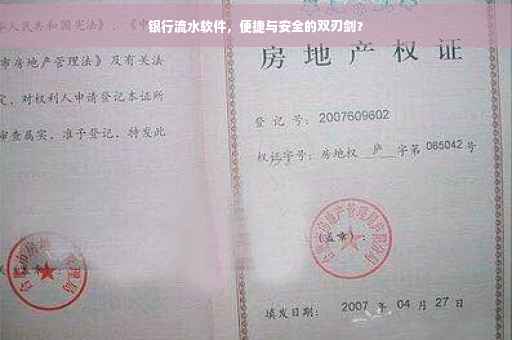 银行流水软件，便捷与安全的双刃剑？
人民共和国宪法》、《中
市房地产管理法》及有关
定，对权利人申请登记本证所
审查属实，准予登记，特发此
房地产权证
登记号：2007609602
权证字号：房地权 庐 字第 065042 号
（盖章）：
填发日期： 2007 年 04 月 27 日